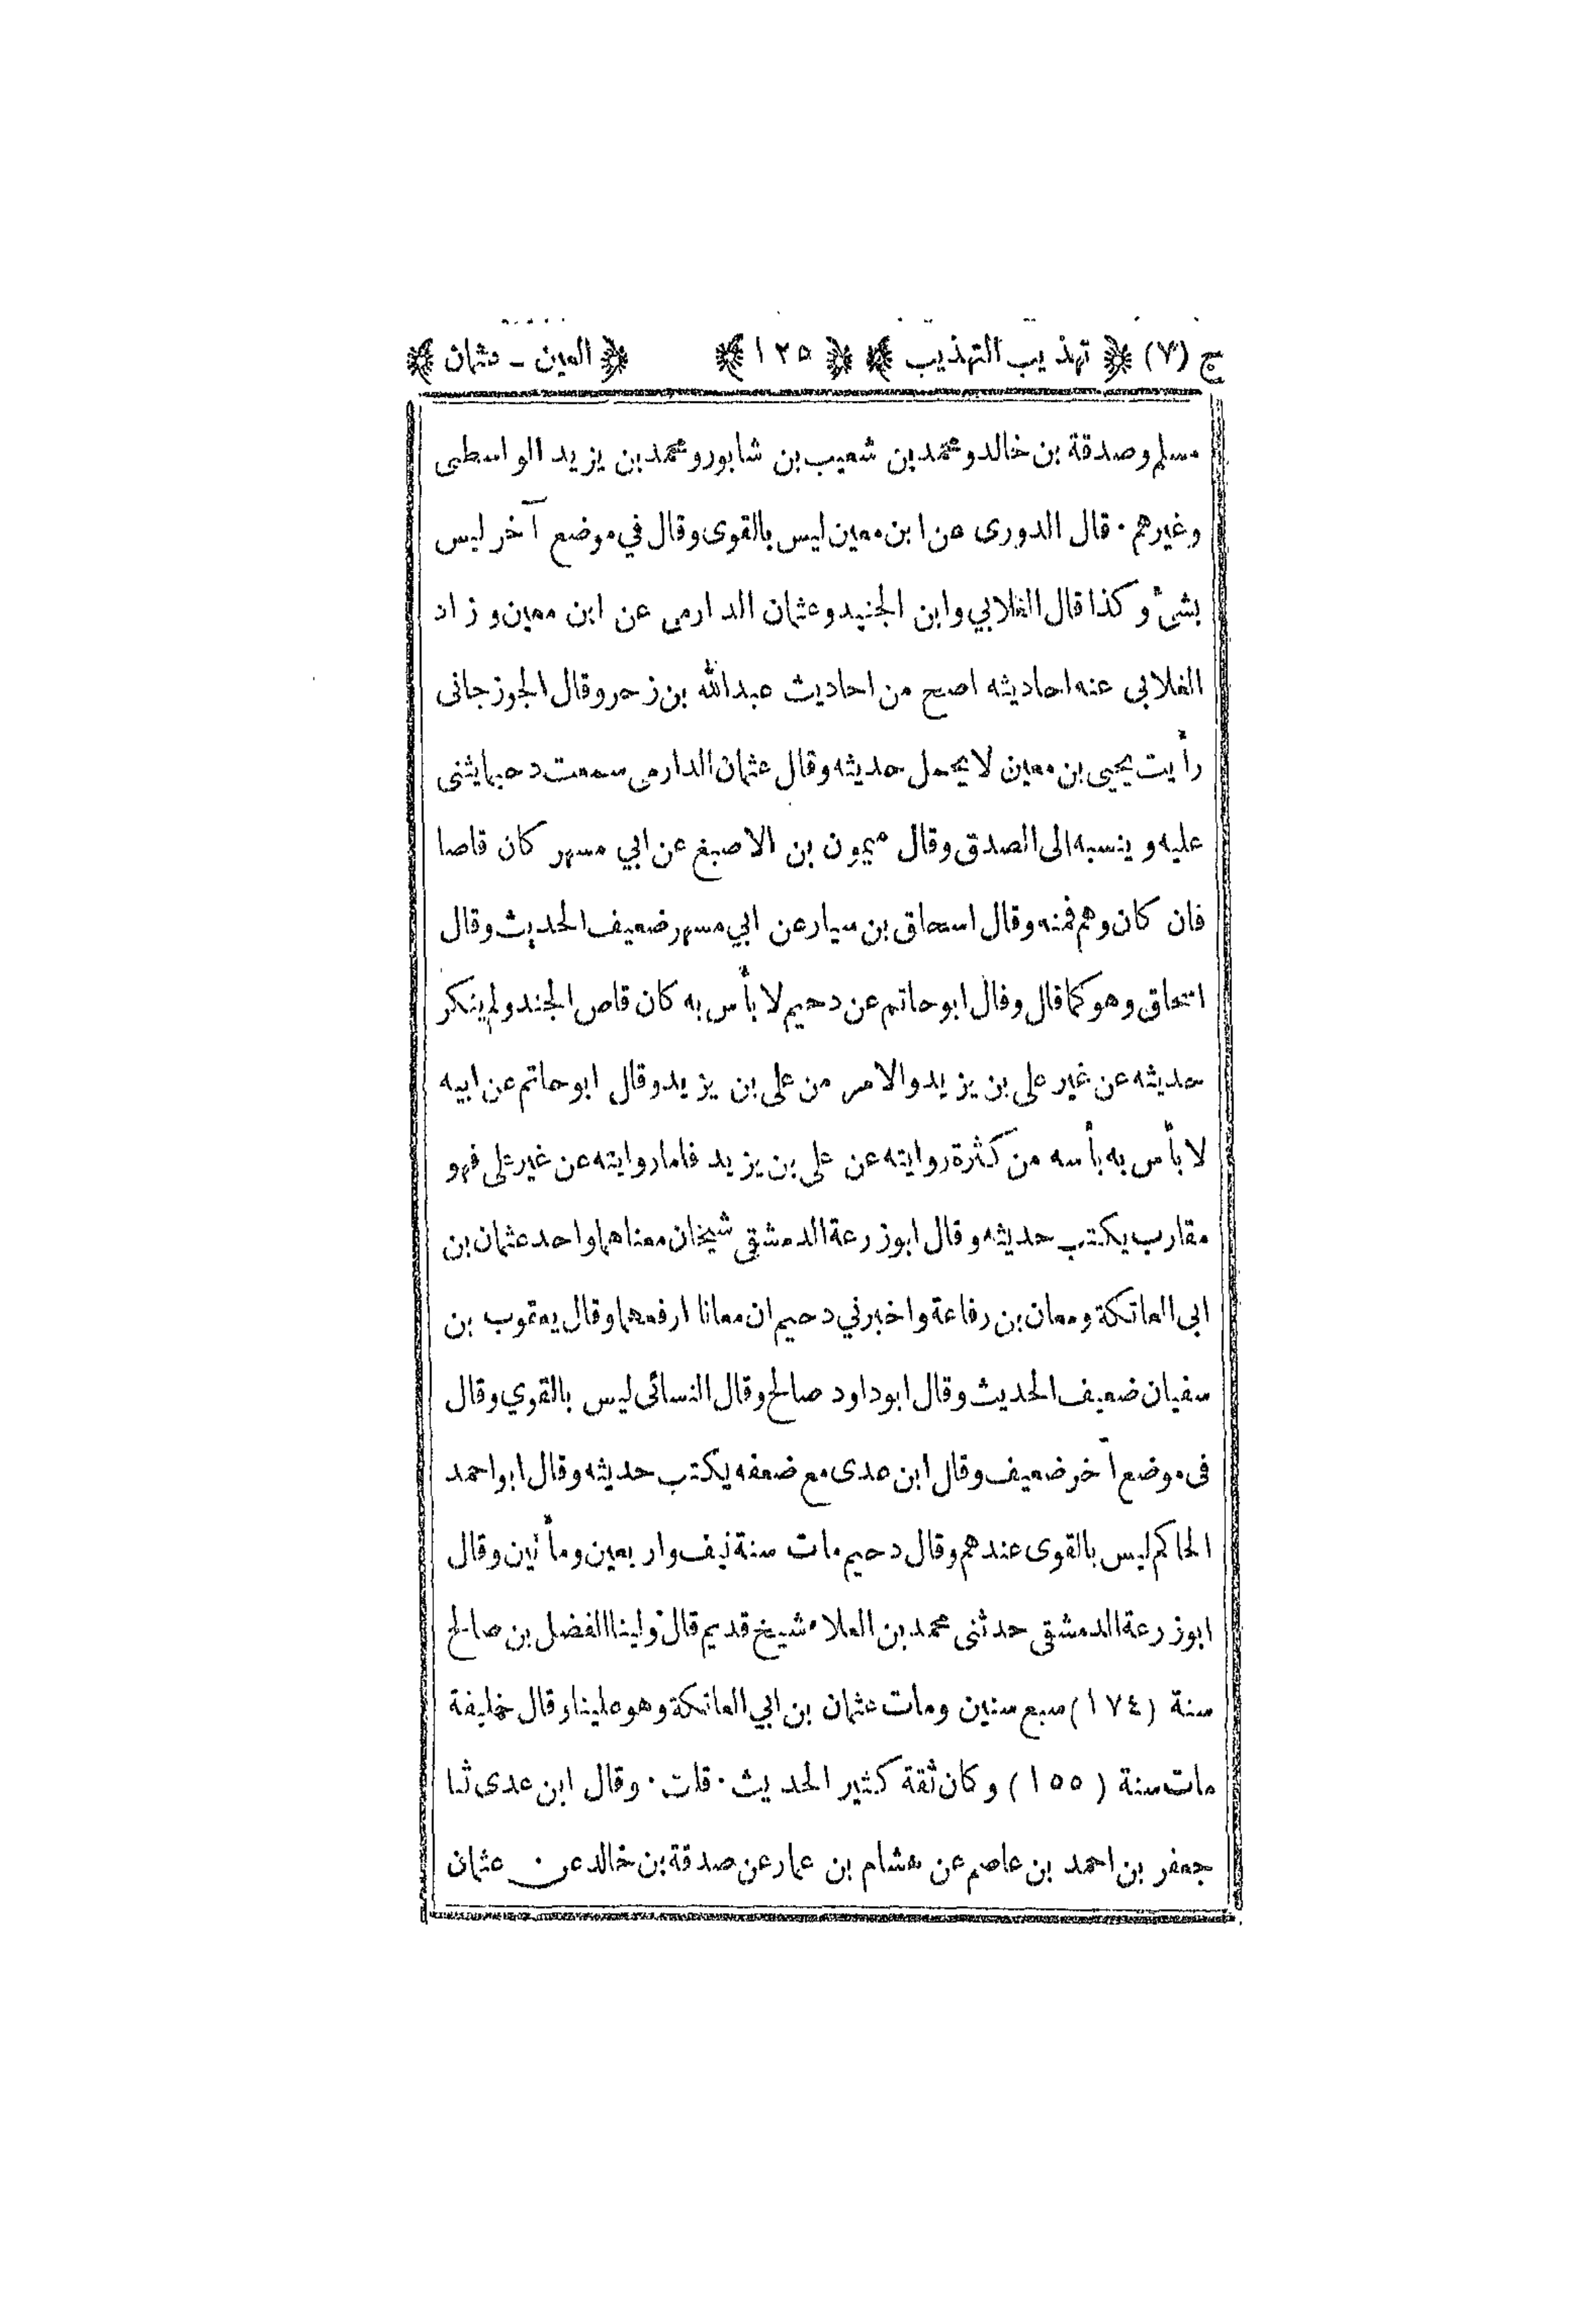 ج (٧) ﴿ تهذيب التهذيب ﴾ ﴿ ١٢٥ ﴾ ﴿ العين - عثمان ﴾
مسلم وصدقة بن خالد ومحمد بن شعيب بن شابور ومحمد بن يزيد الواسطى
وغيرهم · قال الدورى عن ابن معين ليس بالقوى وقال في موضع آخر ليس
بشئ وكذا قال الغلابي وابن الجنيد وعثمان الدارمى عن ابن معين وزاد
الغلابى عنه احاديثه اصح من احاديث عبدالله بن زحر وقال الجوزجانى
رأيت يحيى بن معين لا يحمل حديثه وقال عثمان الدارمى سمعت دحيما يثنى
عليه وينسبه الى الصدق وقال ميمون بن الاصبغ عن ابي مسهر كان قاصا
فان كان وهم فمنه وقال اسحاق بن سيار عن ابي مسهر ضعيف الحديث وقال
اسحاق وهو كما قال وقال ابو حاتم عن دحيم لا بأس به كان قاص الجند ولم ينكر
حديثه عن غير على بن يزيد والامر من على بن يزيد وقال ابو حاتم عن ابيه
لا بأس به بأسه من كثرة روايته عن على بن يزيد فاما روايته عن غير على فهو
مقارب يكتب حديثه وقال ابو زرعة الدمشقى شيخان معناهما واحد عثمان بن
ابى العاتكة ومعان بن رفاعة واخبرني دحيم ان معانا ارفعهما وقال يعقوب بن
سفيان ضعيف الحديث وقال ابو داود صالح وقال النسائى ليس بالقوي وقال
فى موضع آخر ضعيف وقال ابن عدى مع ضعفه يكتب حديثه وقال ابو احمد
الحاكم ليس بالقوى عندهم وقال دحيم مات سنة نيف واربعين ومأتين وقال
ابو زرعة الدمشقى حدثنى محمد بن العلاء شيخ قديم قال ولينا الفضل بن صالح
سنة (١٧٤) سبع سنين ومات عثمان بن ابي العاتكة وهو علينا وقال خليفة
مات سنة (١٥٥) وكان ثقة كثير الحديث · قلت · وقال ابن عدى ثنا
جعفر بن احمد بن عاصم عن هشام بن عمار عن صدقة بن خالد عن عثمان